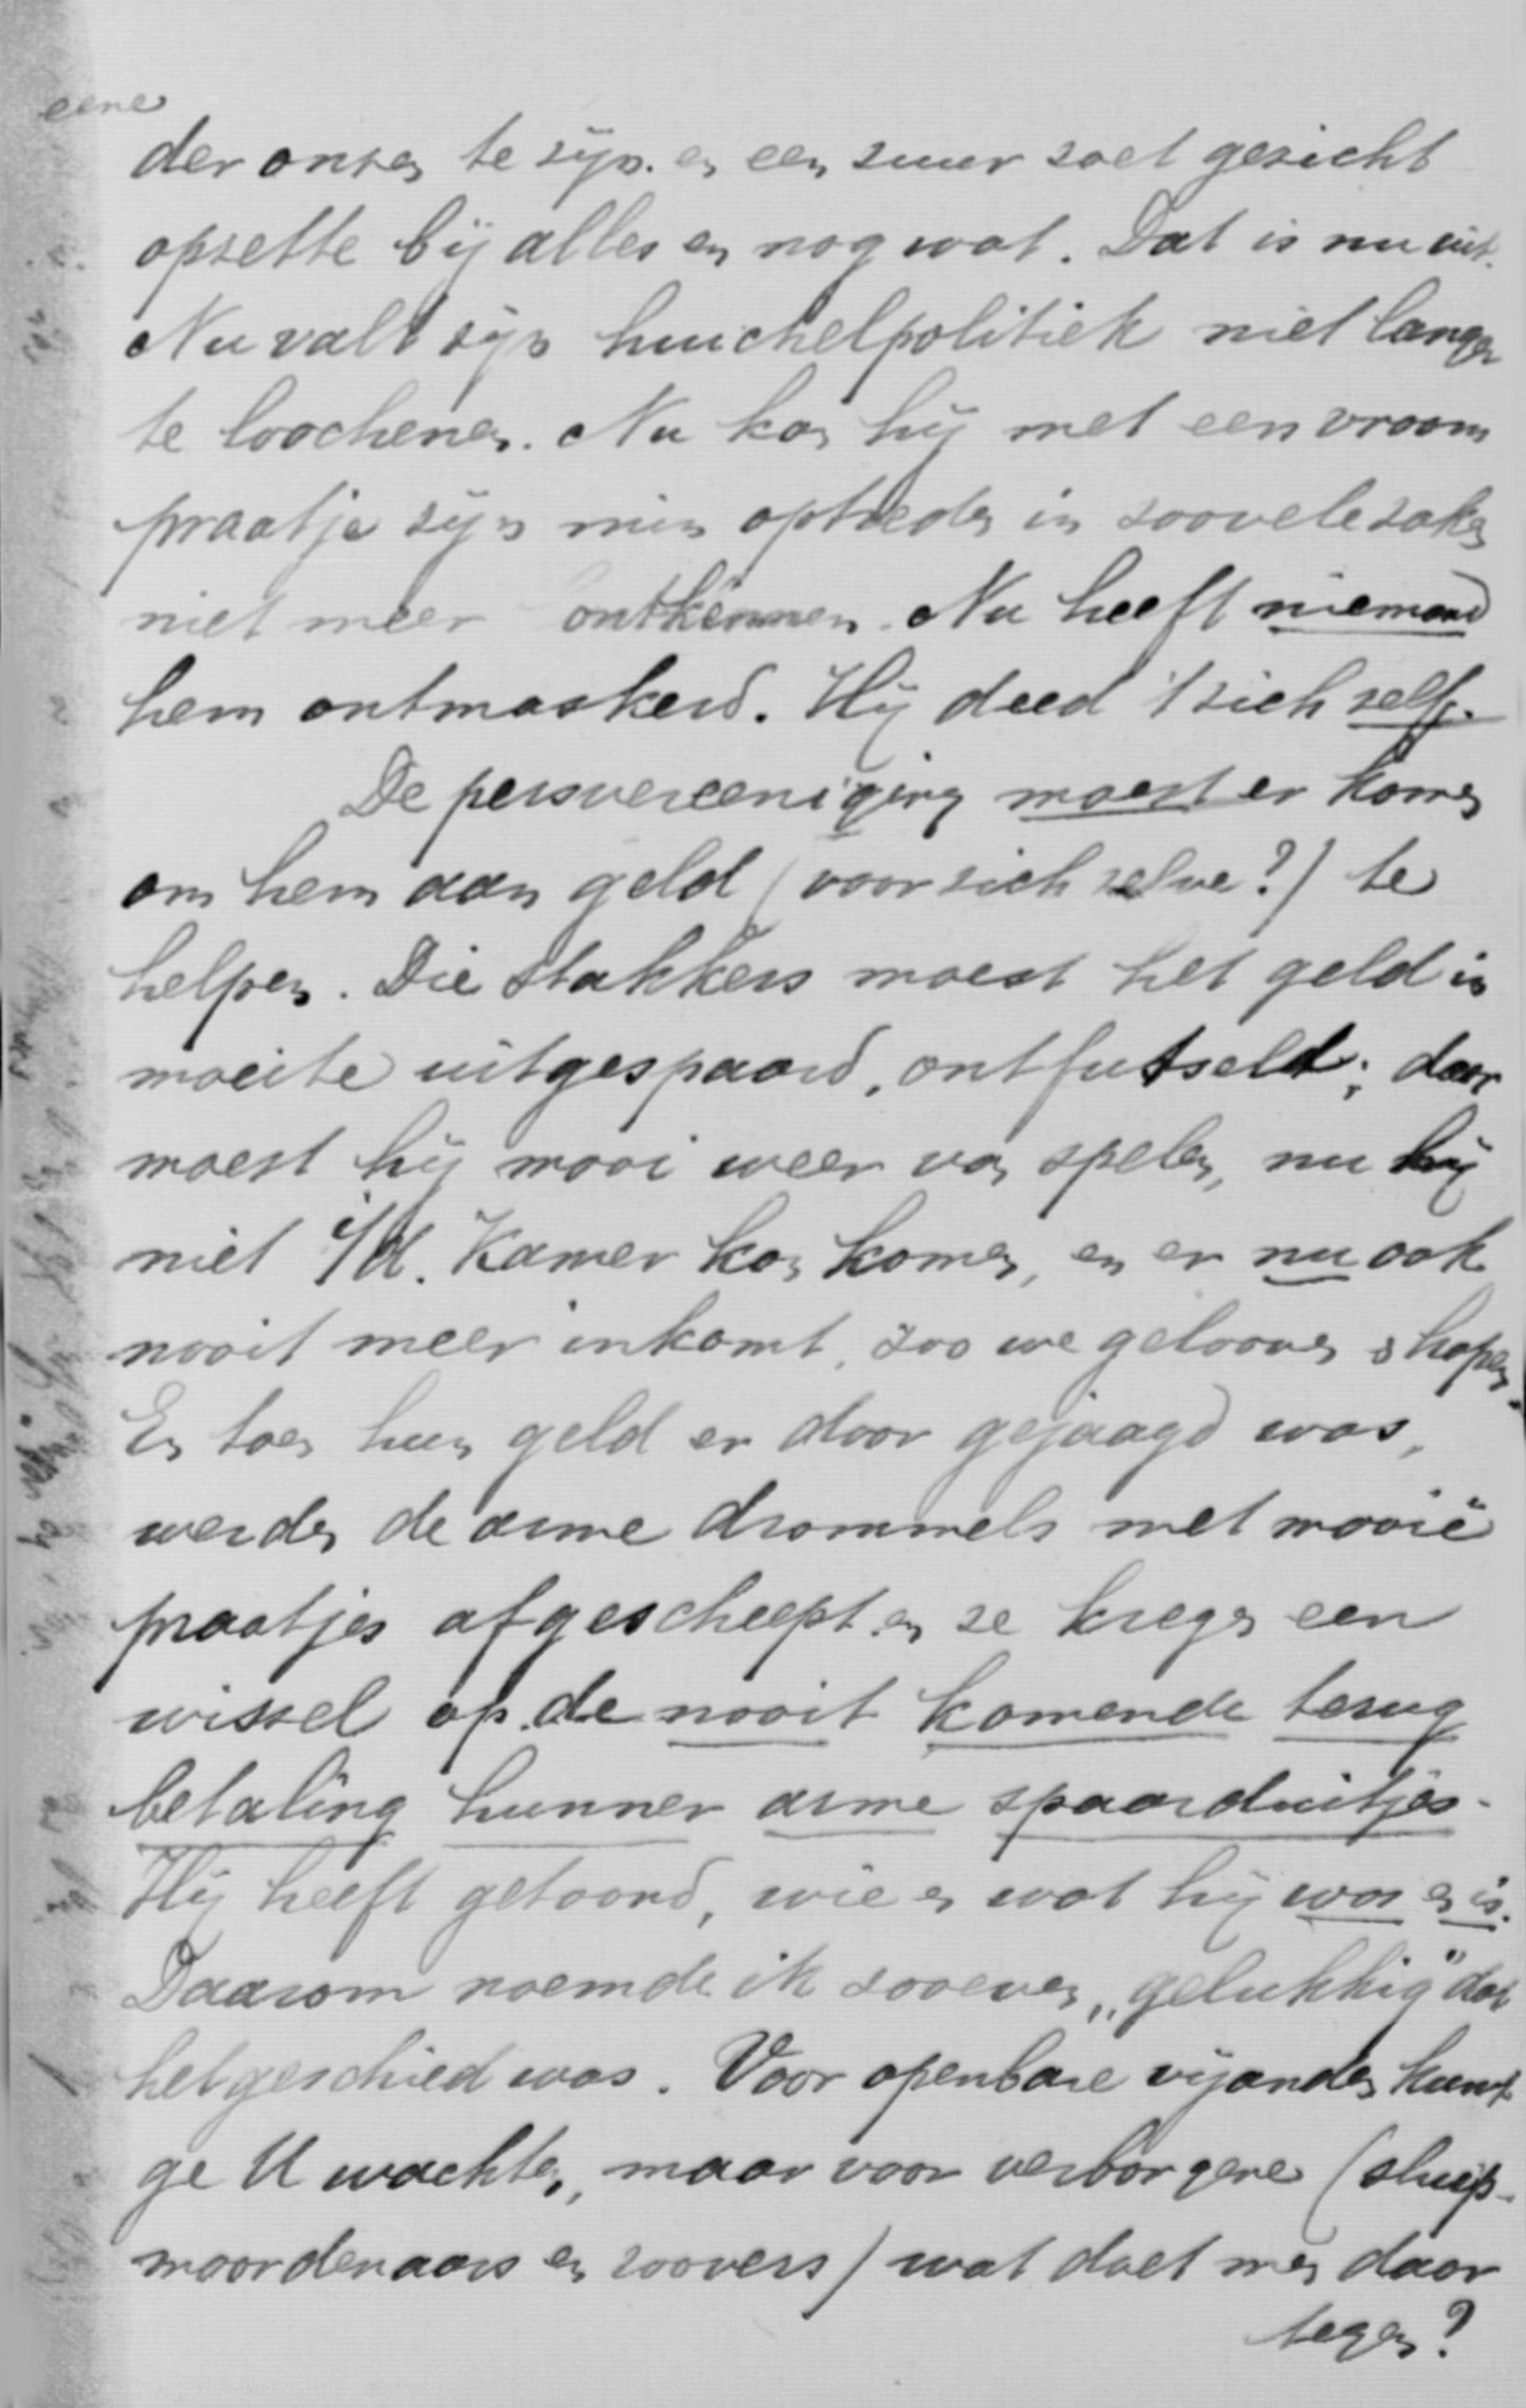 eene
der onzen te zijn. en een zuur zoet gezicht
opzette bij alles en nog wat. Dat is nu uit.
Nu valt zijn huichelpolitiek niet langer
te loochenen. Nu kan hij met een vroom
praatje zijn min optreden in zoovele zaken
niet meer ontkennen. Nu heeft niemand
hem ontmaskerd. Hij deed 't zich zelf.
De persvereeniging moest er komen
om hem aan geld (voor zich zelve?) te
helpen. Die stakkers moest het geld in
moeite uitgespaard, ontfutseld; daar
moest hij mooi weer van spelen, nu hij
niet i/d. Kamer kon komen, en er nu ook
nooit meer inkomt, zoo we gelooven & hopen.
En toen hun geld er door gejaagd was,
werden de arme drommels met mooie
praatjes afgescheept en ze kregen een
wissel op de nooit komende terug
betaling hunner arme spaarduitjes.
Hij heeft getoond, wie en wat hij was en is.
Daarom noemde ik zooeven „gelukkig" dat
het geschied was. Voor openbare vijanden kunt
ge U wachten, maar voor verborgene (sluip-
moordenaars en roovers) wat doet men daar
tegen?